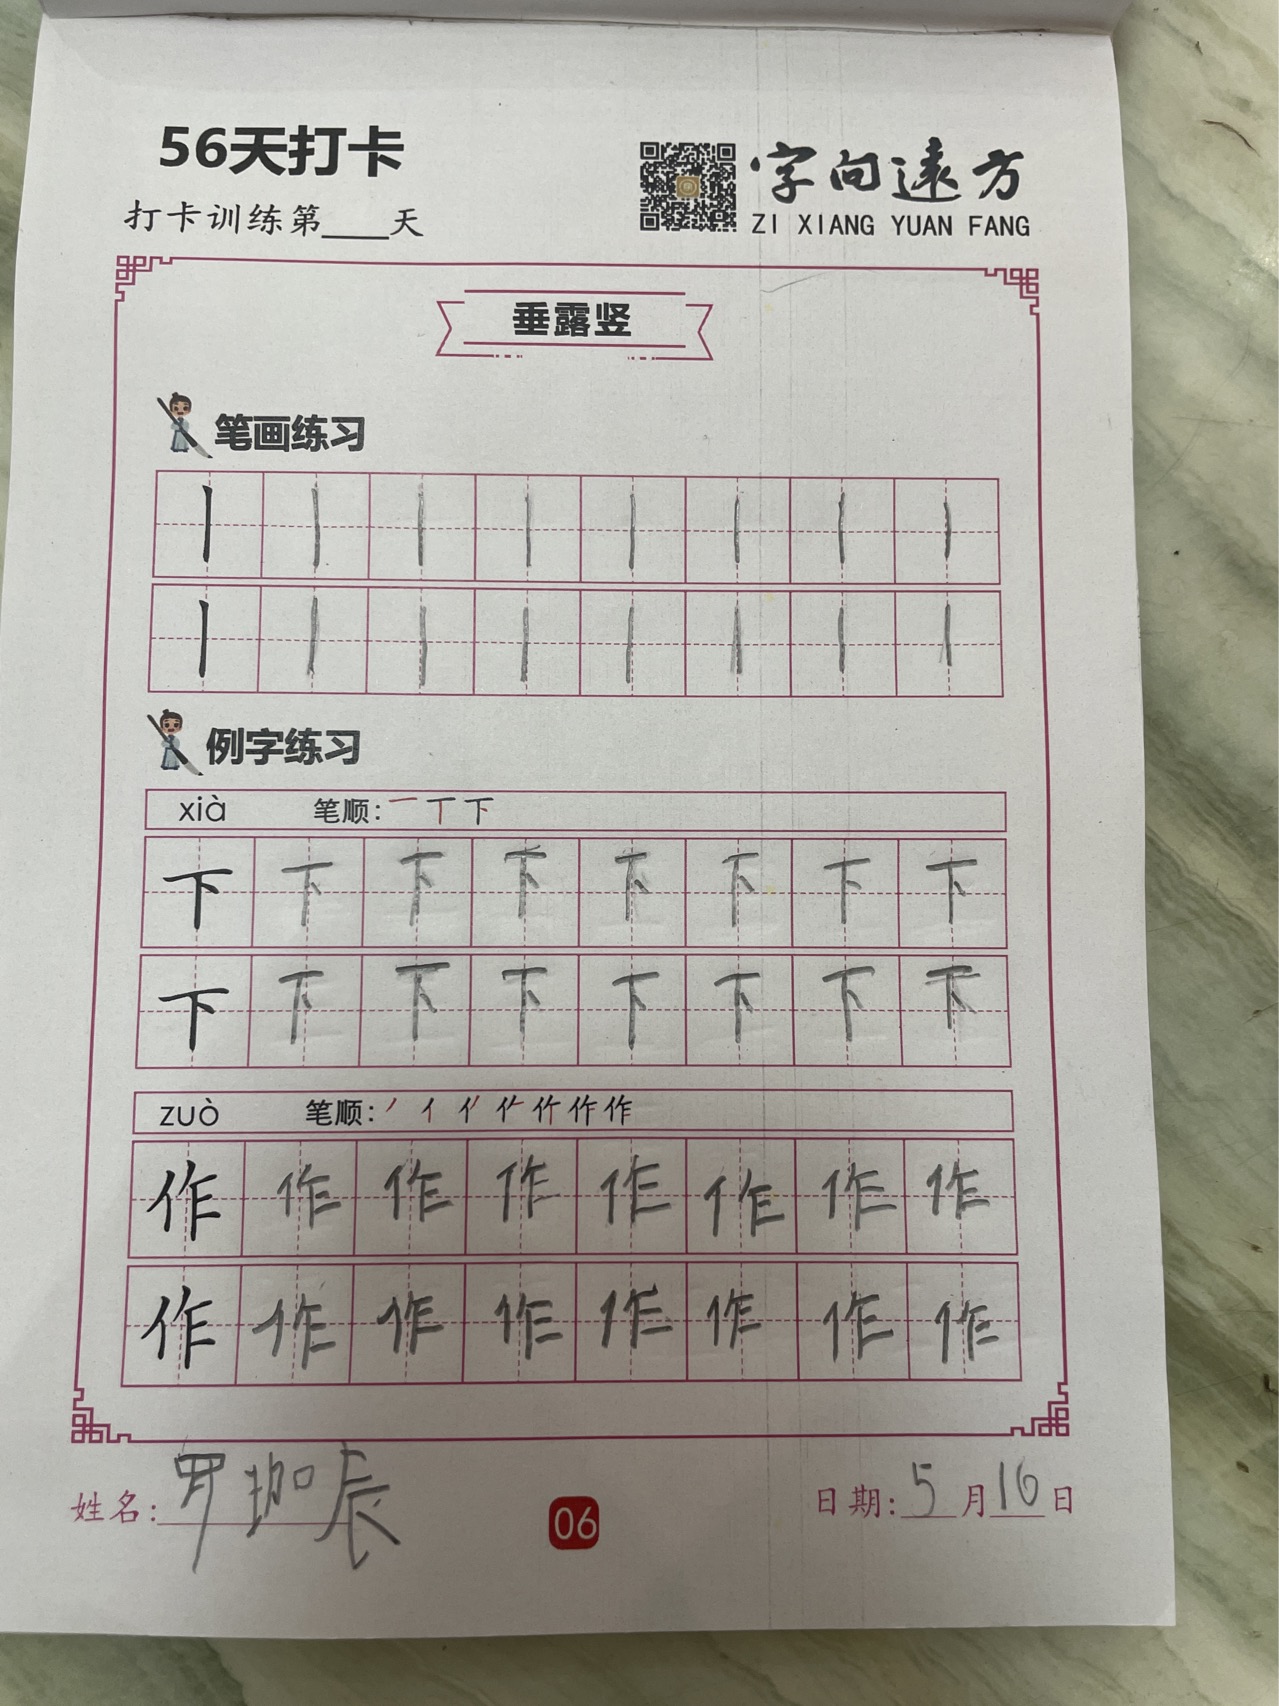 56天打卡
打卡训练第____天
字向远方
ZI XIANG YUAN FANG
垂露竖
笔画练习
丨 丨 丨 丨 丨 丨 丨 丨
丨 丨 丨 丨 丨 丨 丨 丨
例字练习
xià 笔顺: 一 丅 下
下 下 下 下 下 下 下 下
下 下 下 下 下 下 下 下
zuò 笔顺:
作 作 作 作 作 作 作 作
作 作 作 作 作 作 作 作
姓名: 辰
06
日期: 5 月 16 日